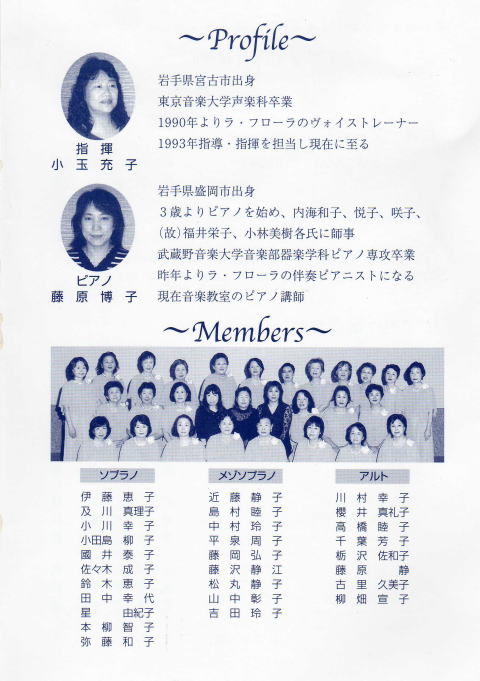 ～Profile～
岩手県宮古市出身
東京音楽大学声楽科卒業
1990年よりラ・フローラのヴォイストレーナー
1993年指導・指揮を担当し現在に至る
指 揮
小 玉 充 子
岩手県盛岡市出身
３歳よりピアノを始め、内海和子、悦子、咲子、
(故)福井栄子、小林美樹各氏に師事
武蔵野音楽大学音楽部器楽学科ピアノ専攻卒業
昨年よりラ・フローラの伴奏ピアニストになる
現在音楽教室のピアノ講師
ピアノ
藤 原 博 子
～Members～
ソプラノ
伊 藤 恵 子
及 川 真理子
小 川 幸 子
小田島 柳 子
國 井 泰 子
佐々木 成 子
鈴 木 恵 子
田 中 幸 代
星 由紀子
本 柳 智 子
弥 藤 和 子
メゾソプラノ
近 藤 静 子
島 村 睦 子
中 村 玲 子
平 泉 周 子
藤 岡 弘 子
藤 沢 静 江
松 丸 静 子
山 中 彰 子
吉 田 玲 子
アルト
川 村 幸 子
櫻 井 真礼子
高 橋 睦 子
千 葉 芳 子
栃 沢 佐和子
藤 原 静
古 里 久美子
柳 畑 宣 子